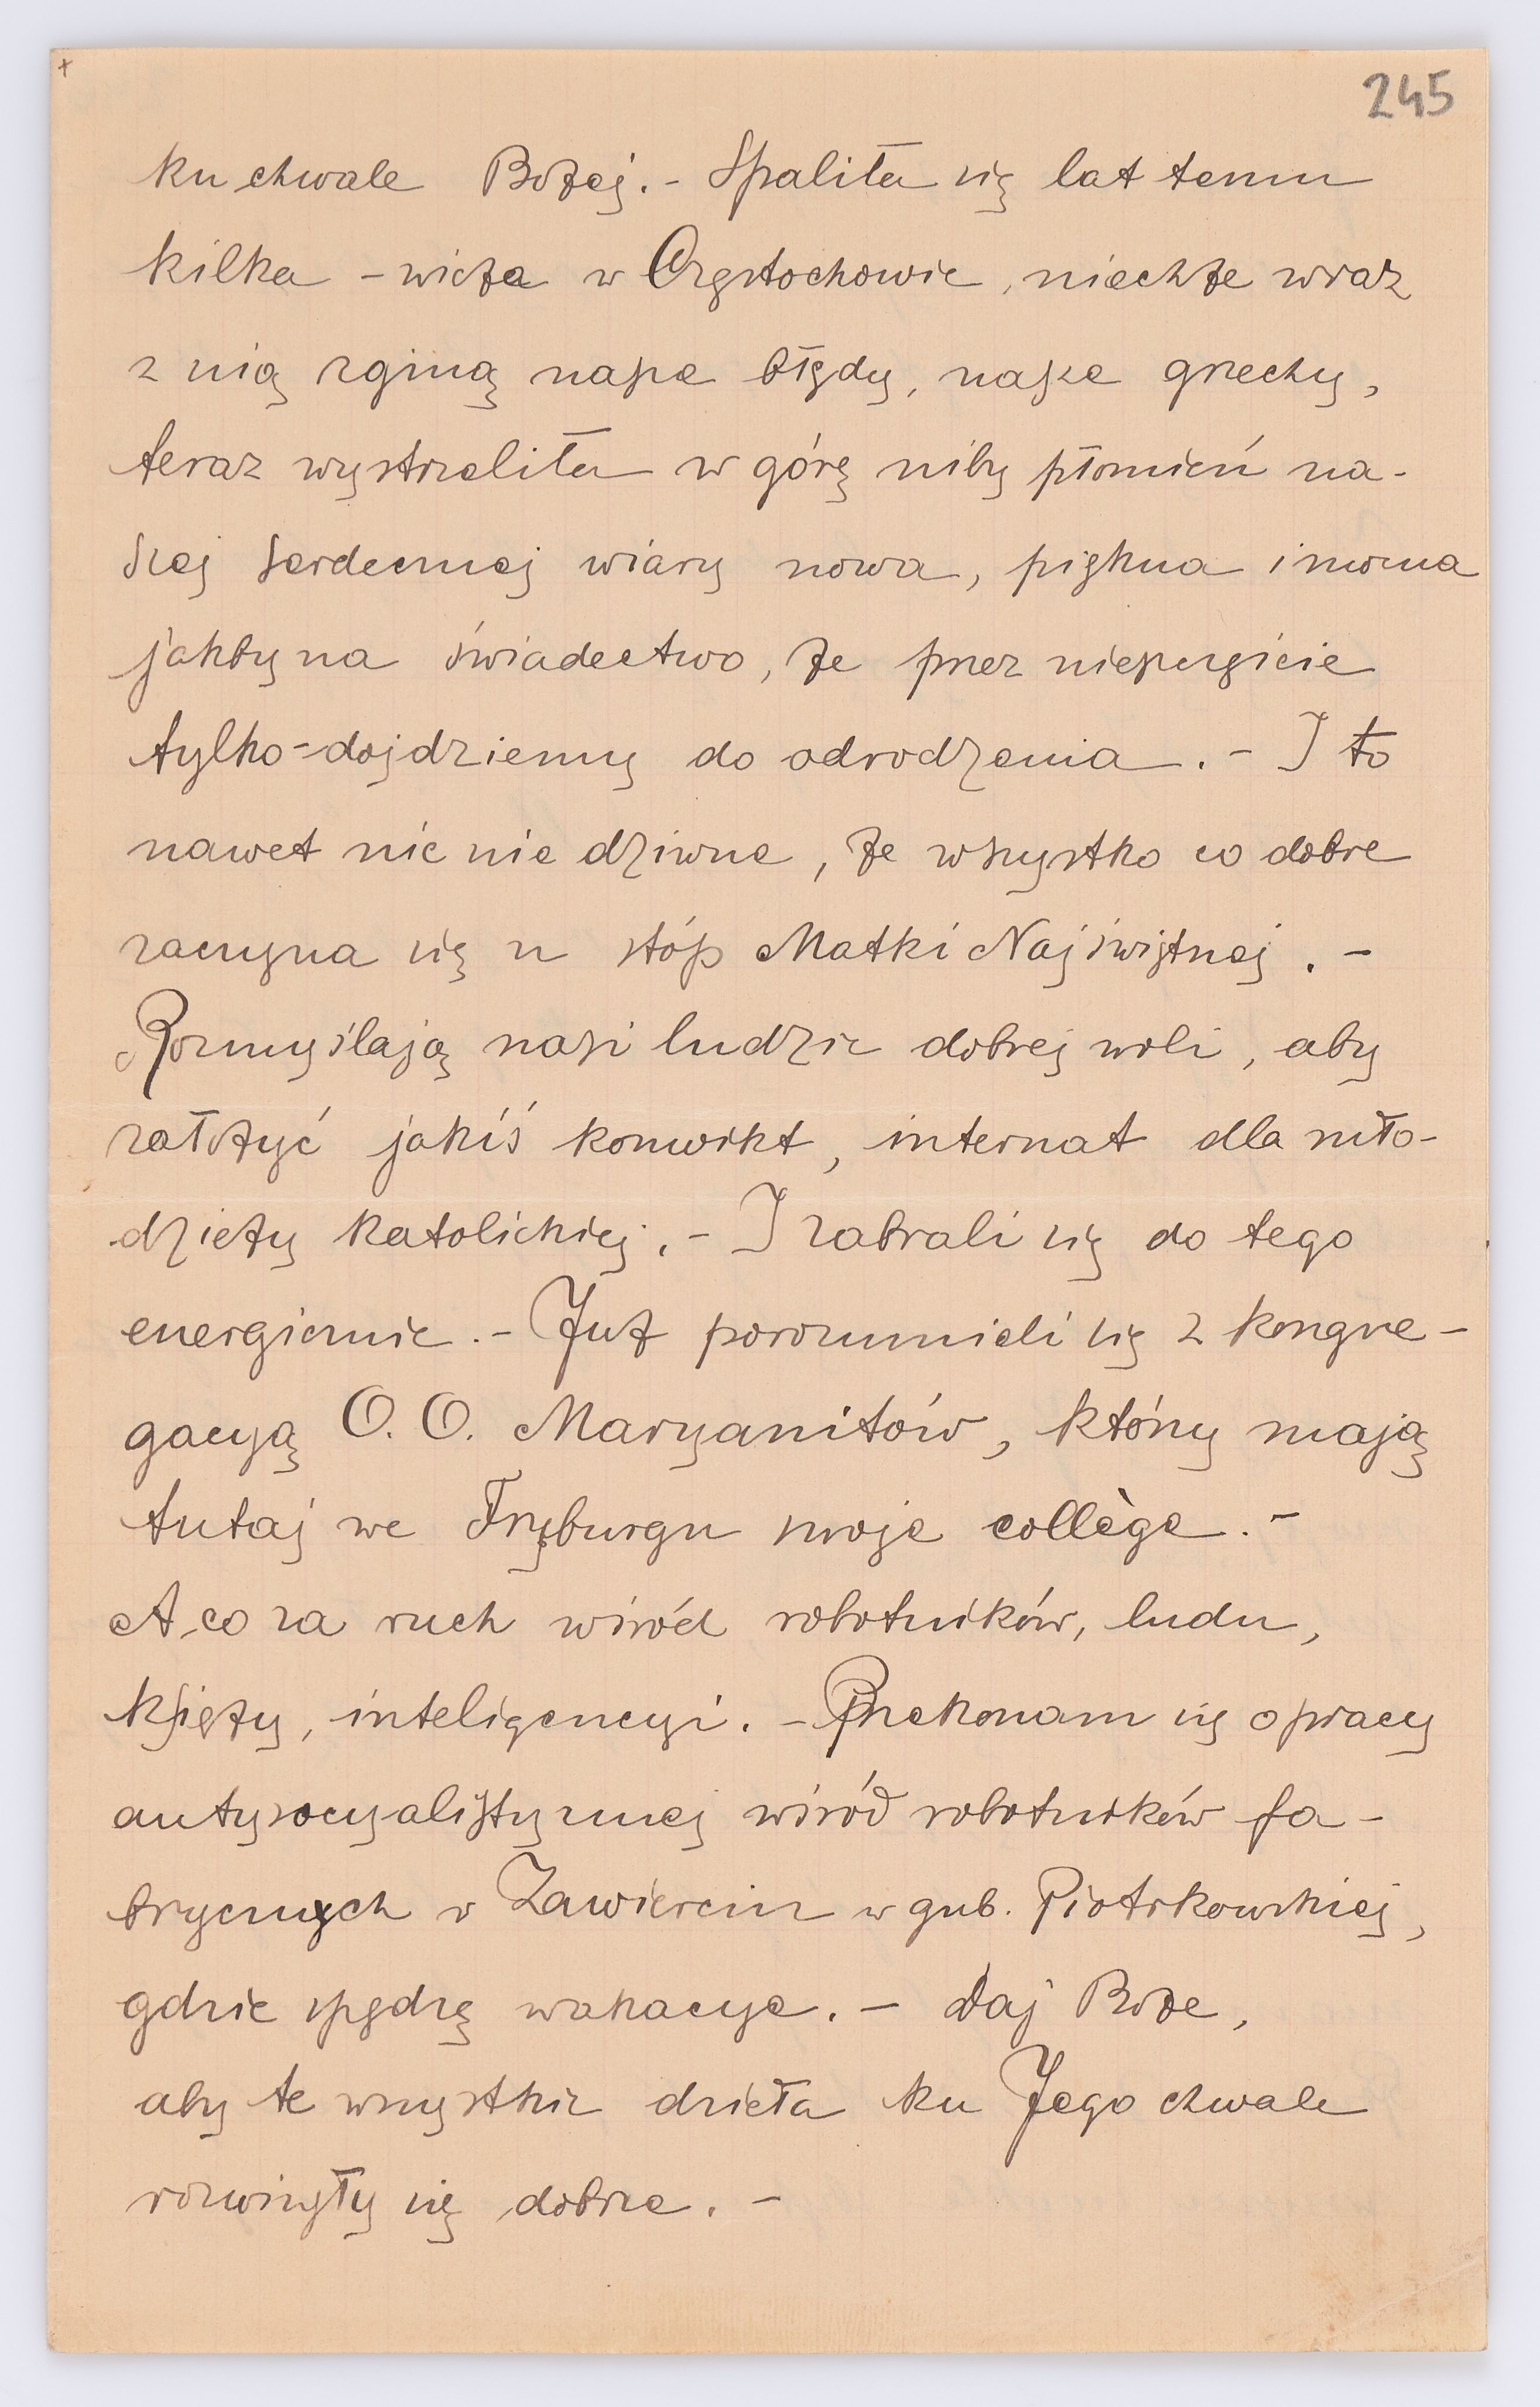 245
ku chwale Bożej. - Spaliła się lat temu
kilka - wieża w Częstochowie, niechże wraz
z nią zginą nasze błędy, nasze grzechy,
teraz wystrzeliła w górę niby płomień na-
szej serdecznej wiary nowa, piękna i mocna
jakby na świadectwo, że przez nieszczęście
tylko - dojdziemy do odrodzenia. - I to
nawet nic nie dziwne, że wszystko co dobre
zaczyna się u stóp Matki Najświętszej. -
Rozmyślają nasi ludzie dobrej woli, aby
założyć jakiś konwikt, internat dla mło-
dzieży katolickiej. - I zabrali się do tego
energicznie. - Już porozumieli się z kongre-
gacyą O. O. Maryanitów, którzy mają
tutaj we Fryburgu swoje collège. -
A co za ruch wśród robotników, ludu,
księży, inteligencyi. - Przekonam się o pracy
antysocyalistycznej wśród robotników fa-
brycznych w Zawierciu w gub. Piotrkowskiej,
gdzie spędzę wakacye. - Daj Boże,
aby te wszystkie dzieła ku Jego chwale
rozwinęły się dobrze. -